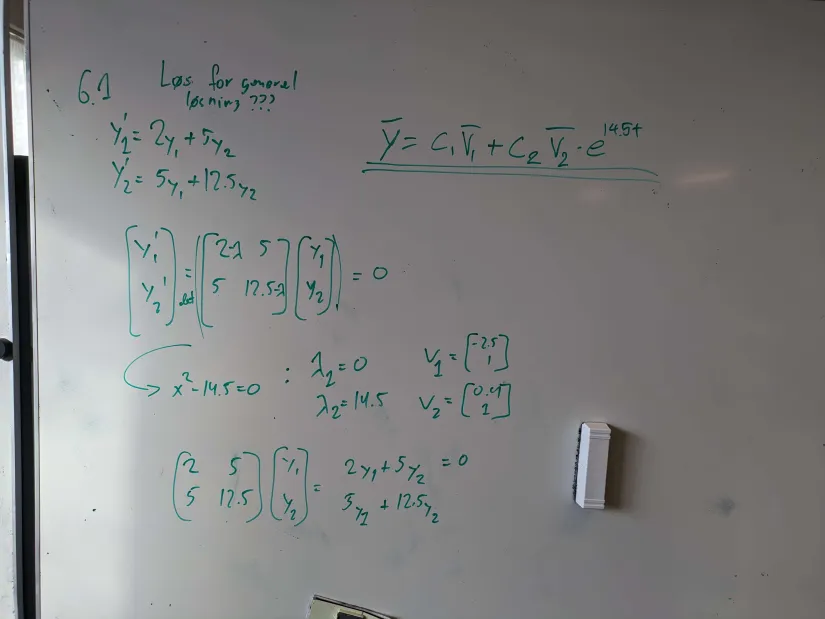 6.1 Løs for general
løsning ???
y₂' = 2y₁ + 5y₂
y₂' = 5y₁ + 12.5y₂
ȳ = C₁v̄₁ + C₂v̄₂ · e^14.5t
[y₁' y₂'] = det([2-λ 5; 5 12.5-λ][y₁ y₂]) = 0
x² - 14.5 = 0 : λ₂ = 0 v₁ = [-2.5 1]
λ₂ = 14.5 v₂ = [0.4 1]
(2 5; 5 12.5)[y₁ y₂] = 2y₁ + 5y₂ = 0
5y₁ + 12.5y₂